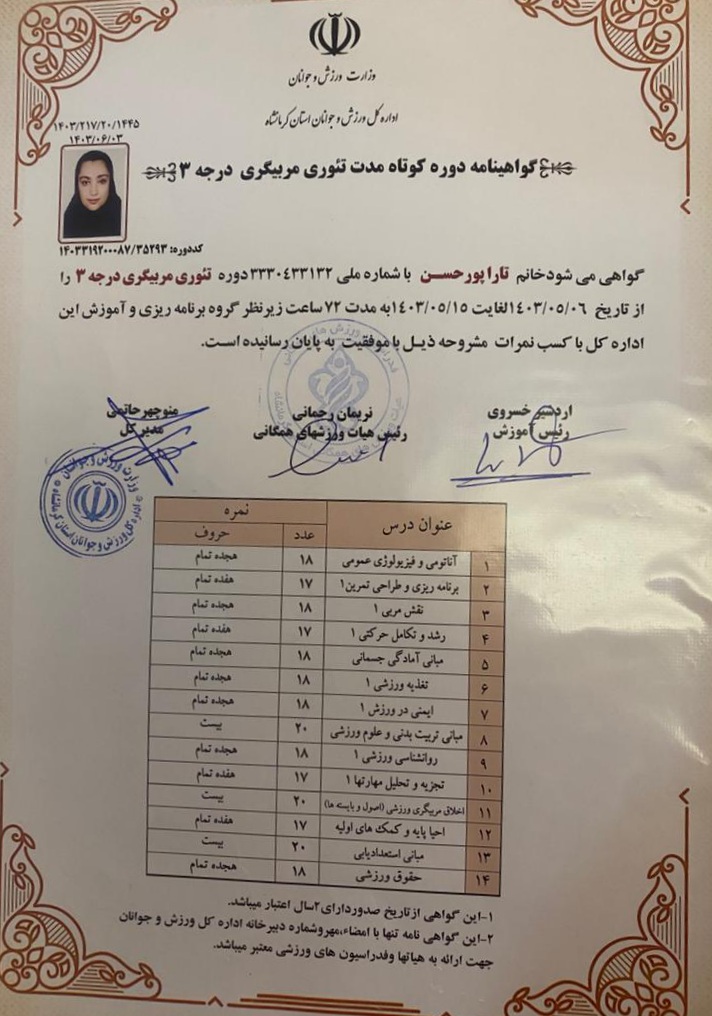 وزارت ورزش و جوانان
اداره کل ورزش و جوانان استان کرمانشاه
۱۴۰۳/۲۱۷/۲۰/۱۴۴۵
۱۴۰۳/۰۶/۰۳
گواهینامه دوره کوتاه مدت تئوری مربیگری درجه ۳
کددوره: ۱۴۰۳۳۱۹۲۰۰۰۸۷/۳۵۲۹۳
گواهی می شودخانم تارا پورحسن با شماره ملی ۳۳۳۰۴۳۳۱۳۲ دوره تئوری مربیگری درجه ۳ را
از تاریخ ۱۴۰۳/۰۵/۰۶ لغایت ۱۴۰۳/۰۵/۱۵ به مدت ۷۲ ساعت زیرنظر گروه برنامه ریزی و آموزش این
اداره کل با کسب نمرات مشروحه ذیل با موفقیت به پایان رسانیده است.
اردشیر خسروی نریمان رحمانی منوچهر حاتمی
رئیس آموزش رئیس هیات ورزشهای همگانی مدیر کل
وزارت ورزش و جوانان
اداره کل ورزش و جوانان استان کرمانشاه
عنوان درس نمره
عدد حروف
۱ آناتومی و فیزیولوژی عمومی ۱۸ هجده تمام
۲ برنامه ریزی و طراحی تمرین۱ ۱۷ هفده تمام
۳ نقش مربی ۱ ۱۸ هجده تمام
۴ رشد و تکامل حرکتی ۱ ۱۷ هفده تمام
۵ مبانی آمادگی جسمانی ۱۸ هجده تمام
۶ تغذیه ورزشی ۱ ۱۸ هجده تمام
۷ ایمنی در ورزش ۱ ۱۸ هجده تمام
۸ مبانی تربیت بدنی و علوم ورزشی ۲۰ بیست
۹ روانشناسی ورزشی ۱ ۱۸ هجده تمام
۱۰ تجزیه و تحلیل مهارتها ۱ ۱۷ هفده تمام
۱۱ اخلاق مربیگری ورزشی (اصول و بایسته ها) ۲۰ بیست
۱۲ احیا پایه و کمک های اولیه ۱۷ هفده تمام
۱۳ مبانی استعدادیابی ۲۰ بیست
۱۴ حقوق ورزشی ۱۸ هجده تمام
۱-این گواهی ازتاریخ صدوردارای۲سال اعتبار میباشد.
۲-این گواهی نامه تنها با امضاء،مهروشماره دبیرخانه اداره کل ورزش و جوانان
جهت ارائه به هیاتها وفدراسیون های ورزشی معتبر میباشد.